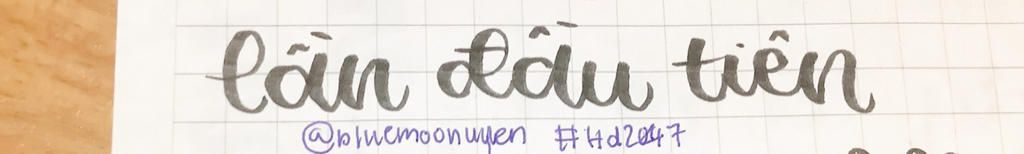 lần đầu tiên
@bluemoonuyen #Hd2047